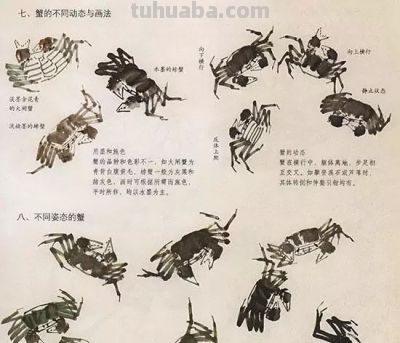 tuhuaba.com
七、蟹的不同动态与画法
水墨的螃蟹
淡墨会花青
的大闸蟹
淡绘墨的螃蟹
向下
横行
向上横行
静止状态
反体上爬
用墨和施色
蟹的品种和色彩不一，如大闸蟹为
青背白腹黄毛，螃蟹一般为灰藻和
赭灰色，画时可根据所需而施色，
平时所作，均以水墨为主。
蟹的动态
蟹在横行中，躯体离地，步足相
互交叉。如攀登来石或芦苇时，
其体特倒和伸紧引钳均有。
八、不同姿态的蟹